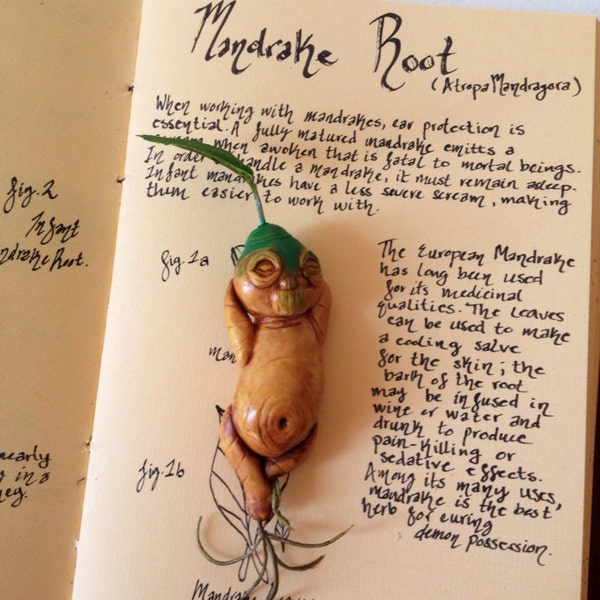 fig. 2
Infant
ndrake Root.
nearly
in a
ney.
Mandrake Root
(Atropa Mandragora)
When working with mandrakes, ear protection is
essential. A fully matured mandrake emits a
when awoken that is fatal to mortal beings.
In order handle a mandrake, it must remain asleep.
Infant mandrakes have a less severe scream, making
them easier to work with.
fig. 1a
man
fig. 1b
Mandrake
The European Mandrake
has long been used
for its medicinal
qualities. The leaves
can be used to make
a cooling salve
for the skin; the
bark of the root
may be infused in
wine or water and
drunk to produce
pain-killing or
sedative effects.
Among its many uses,
mandrake is the best
herb for curing
demon possession.